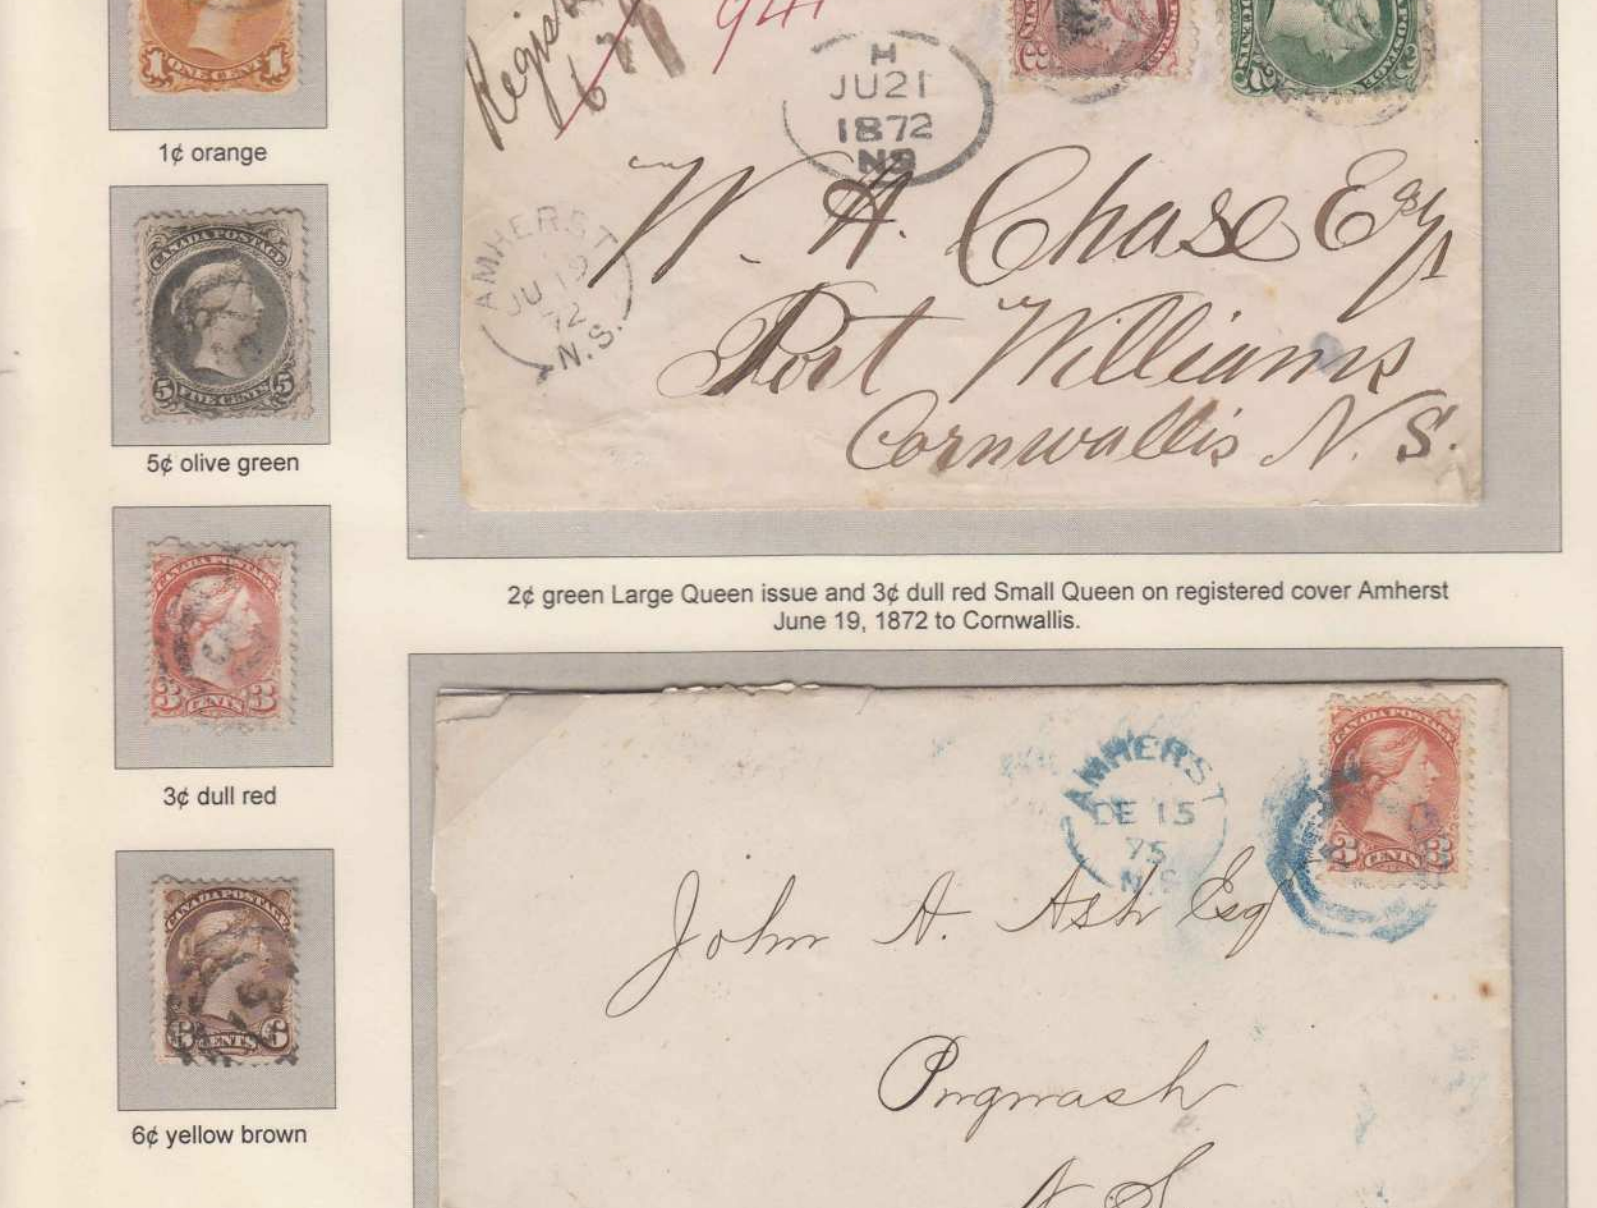 1 ONE CENT 1
1¢ orange
CANADA POSTAGE
5 FIVE CENTS 5
5¢ olive green
CANADA POSTAGE
3 CENTS 3
3¢ dull red
CANADA POSTAGE
6 CENTS 6
6¢ yellow brown
941
H
JU 21
1872
NS
AMHERST
JU 19
72
N.S.
W. H. Chase Esqr
Port Williams
Cornwallis N. S.
2¢ green Large Queen issue and 3¢ dull red Small Queen on registered cover Amherst
June 19, 1872 to Cornwallis.
CANADA POSTAGE
3 CENTS 3
AMHERST
DE 15
75
N.S
John A. Ash Esq
Pugwash
N. S